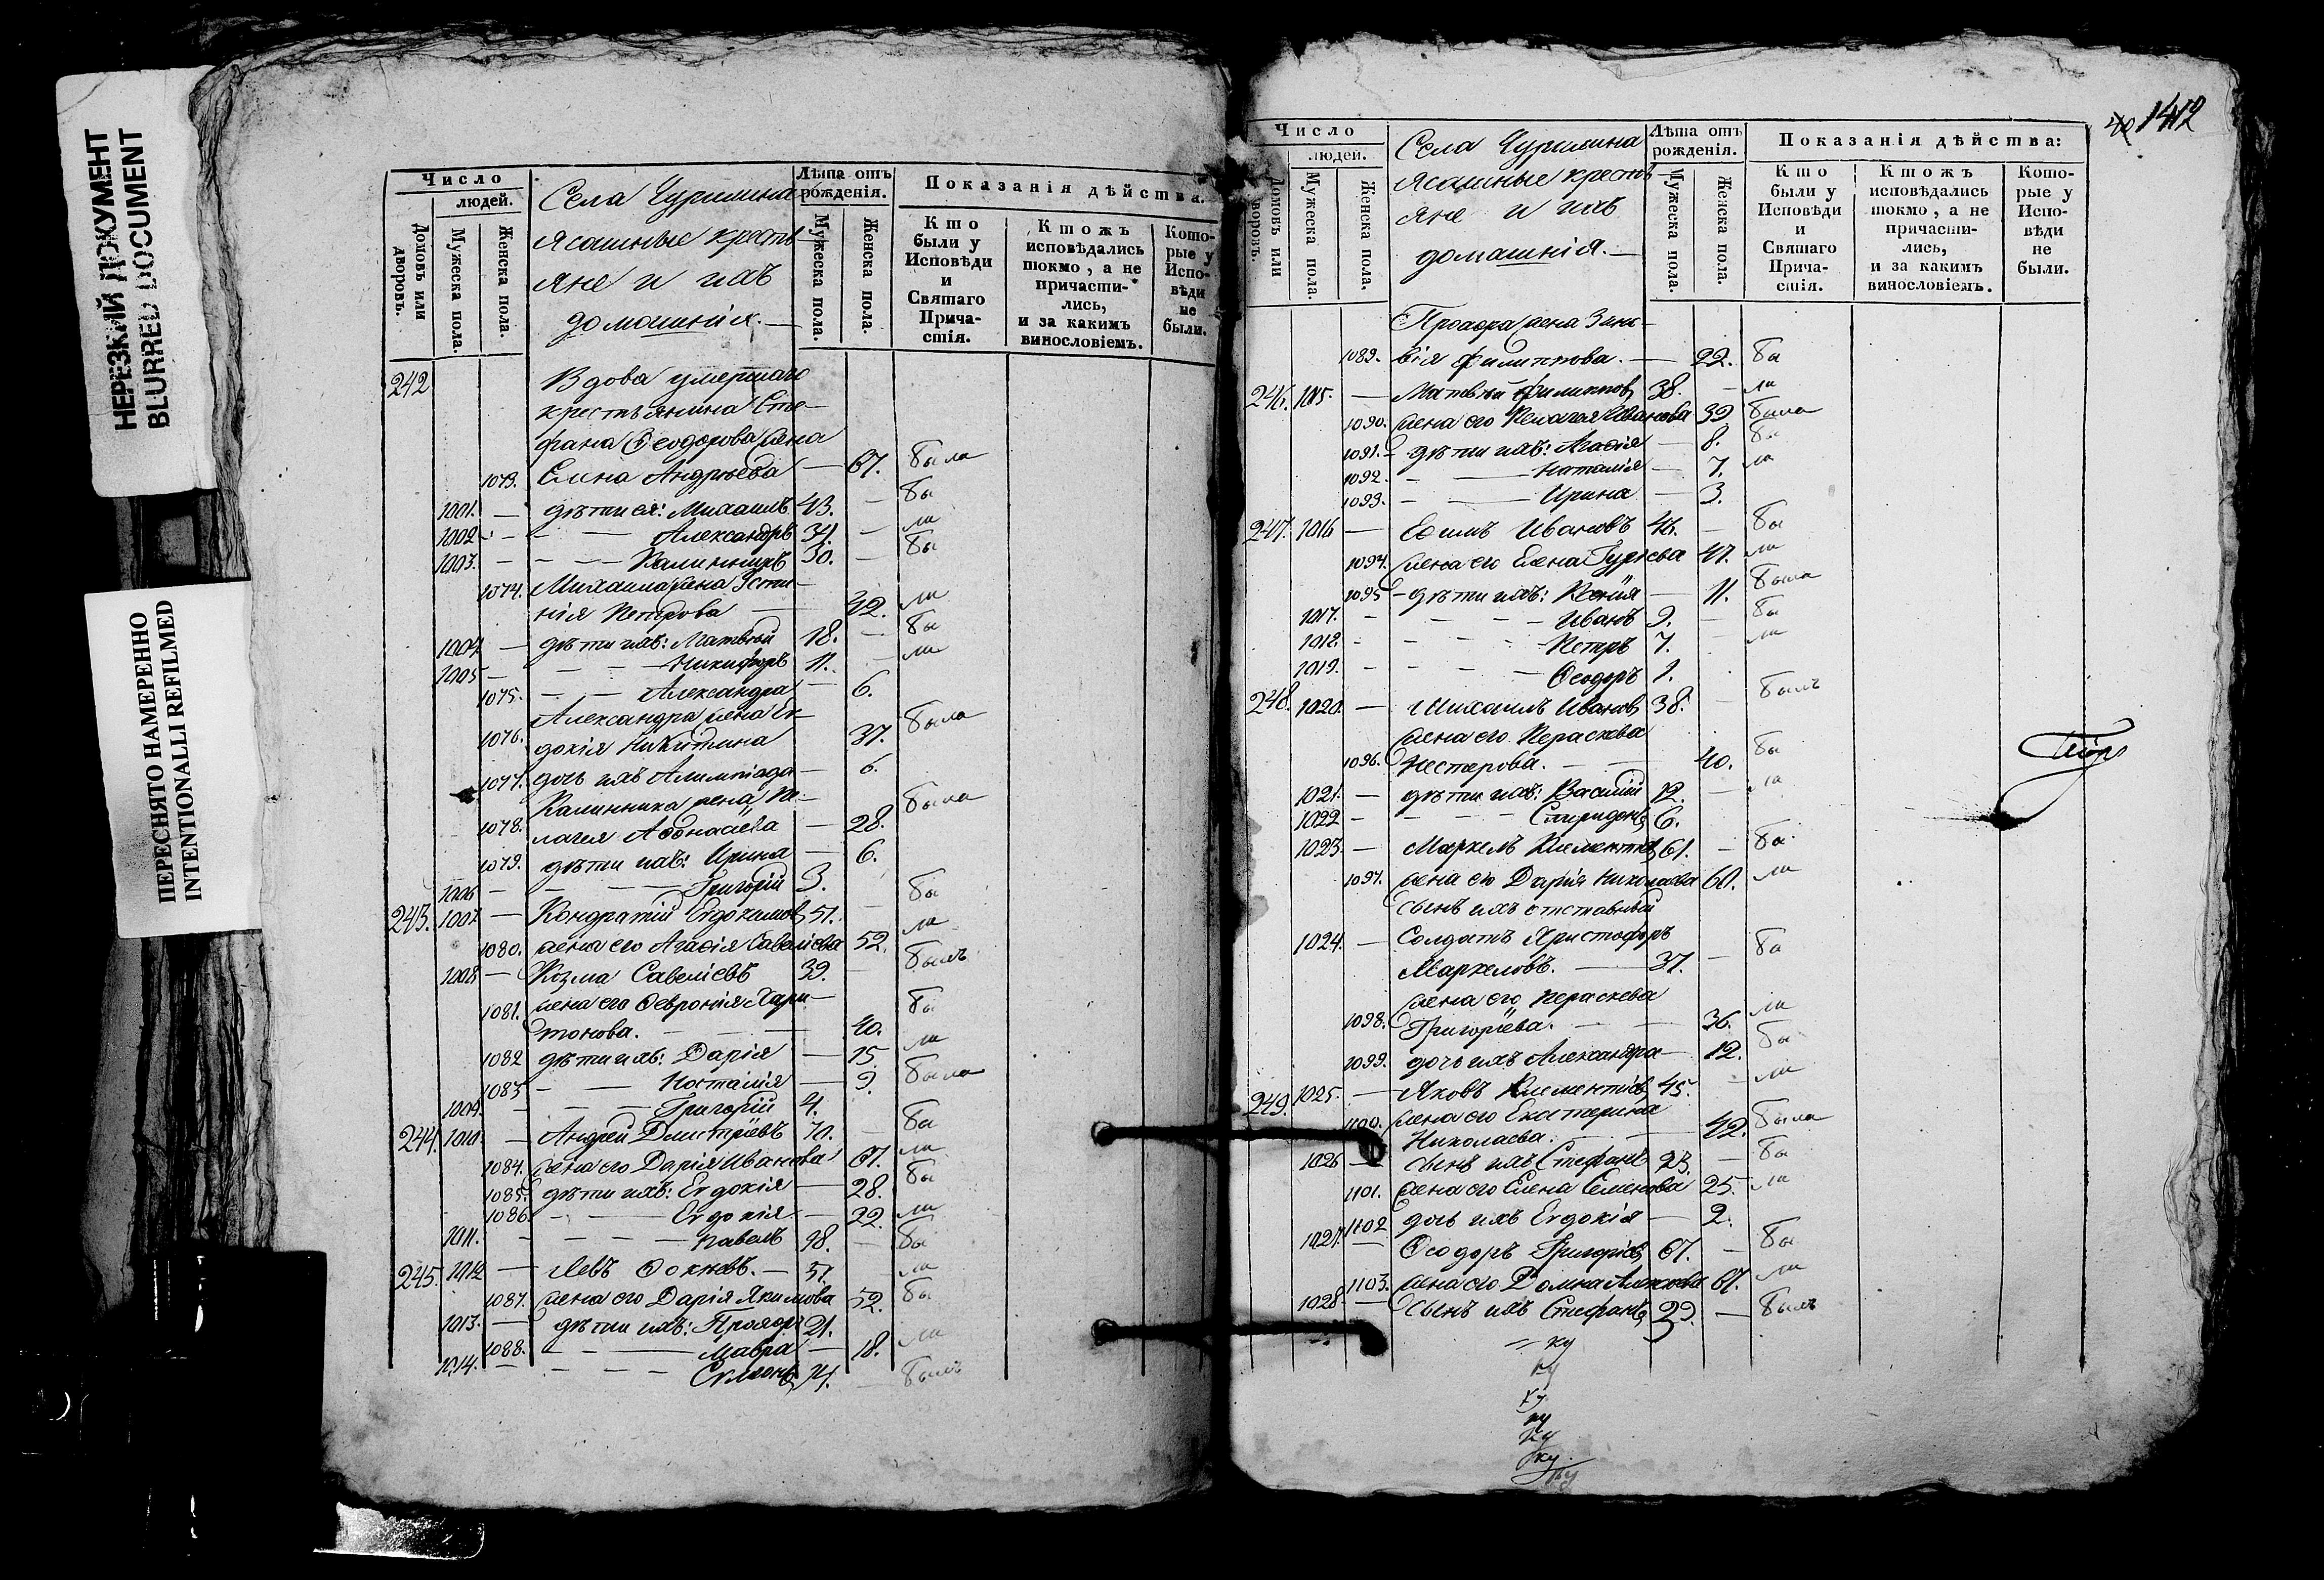 НЕРЕЗКИЙ ДОКУМЕНТ
BLURRED DOCUMENT
ПЕРЕСНЯТО НАМЕРЕННО
INTENTIONALLI REFILMED
Число
людей.
Домовъ или дворовъ.
Мужеска пола.
Женска пола.
Села Чурилина
Ясашные кресть-
яне и ихъ
домашнія.
Лѣта отъ рожденія.
Мужеска пола.
Женска пола.
Показанія дѣйства.
Кто были у Исповѣди и Святаго Прича-стія.
Ктожъ исповѣдались токмо, а не причасти-лись, и за какимъ винословіемъ.
Кото-рые у Испо-вѣди не были.
242 Вдова умершаго
крестьянина Сте-
фана Ѳеодорова жена
1073. Елена Андреева — 67. была
1001. — дѣти ея: Михаилъ 43. — бы
1002 — Александръ 34. — ли
1003. — Калинникъ 30. — бы
1074. Михаила жена Усти-
нія Петрова — 42. ли
1004 — дѣти ихъ: Матвѣй 18. — бы
1005 — Никифоръ 11. — ли
1075. — Александра — 6.
Александра жена Ев-
1076. докія Никитина 37. была
1077. дочь ихъ Алимпіада — 6.
Калинника жена Пе-
1078. лагея Аѳонасьева — 28. была
1079. дѣти ихъ: Ирина — 6.
1006 — Григорій 3.
243. 1007 — Кондратій Евдокимовъ 51. — бы
1080. жена его Агаѳія Савеліева 52. ли
1008 — Козма Савеліевъ 39. — былъ
1081. жена его Ѳевронія Хари-
тонова. — 40. бы
1082 дѣти ихъ: Дарія — 15. ли
1083 — Наталія — 9. была
1009. — Григорій 4.
244. 1010. — Андрей Дмитріевъ 70. — бы
1084. жена его Дарія Иванова 67. ли
1085. дѣти ихъ: Евдокія — 28. бы
1086. — Евдокія — 22. ли
1011. — Павелъ 18. — бы
245. 1012 — Левъ Ѳокиевъ. — 51. ли
1087. жена его Дарія Якимова 52. бы
1013. — дѣти ихъ: Прохоръ 21.
1088. — Мавра — 18. ли
1014. — 14. — былъ
1412
Число
людей.
Домовъ или дворовъ.
Мужеска пола.
Женска пола.
Села Чурилина
Ясашные кресть-
яне и ихъ
домашнія.
Лѣта отъ рожденія.
Мужеска пола.
Женска пола.
Показанія дѣйства:
Кто были у Исповѣди и Святаго Прича-стія.
Ктожъ исповѣдались токмо, а не причасти-лись, и за какимъ винословіемъ.
Кото-рые у Испо-вѣди не были.
Прохора жена Зино-
1089. вія Филиппова. — 22. бы
246. 1015. — Матвѣй Филипповъ 38. — ли
1090. жена его Пелагея Иванова 39 была
1091. — дѣти ихъ: Агаѳія — 8. бы
1092. — Наталія — 7. ли
1093. — Ирина — 3.
247. 1016 — Еѳимъ Ивановъ 46. — бы
1094. жена его Елена Гурьева 47. ли
1095 — дѣти ихъ: Ксенія — 11. была
1017. — Иванъ 9. — бы
1018. — Петръ 7. — ли
1019. — Ѳеодоръ 1.
248. 1020. — Михаилъ Ивановъ 38. — былъ
жена его Параскева
1096. Нестерова. — 40. бы
1021. — дѣти ихъ: Василій 12. — ли
1022. — Спиридонъ 6.
1023 — Маркелъ Климентіевъ 61. — бы
1097. жена его Дарія Николаева 60. ли
сынъ ихъ отставный
1024. — Солдатъ Христофоръ
Маркеловъ. — 37. — бы
жена его Параскева
1098. Григоріева. — 36. ли
1099. дочь ихъ Александра — 12. бы
249. 1025. — Яковъ Климентіевъ 45. — ли
1100. жена его Екатерина
Николаева. — 42. была
1026 — сынъ ихъ Стефанъ 23. — бы
1101. жена его Елена Семенова 25. ли
1102 дочь ихъ Евдокія — 2.
1027. — Ѳеодоръ Григоріевъ 67. — бы
1103. жена его Домна 67. ли
1028 — сынъ ихъ Стефанъ 29. — былъ